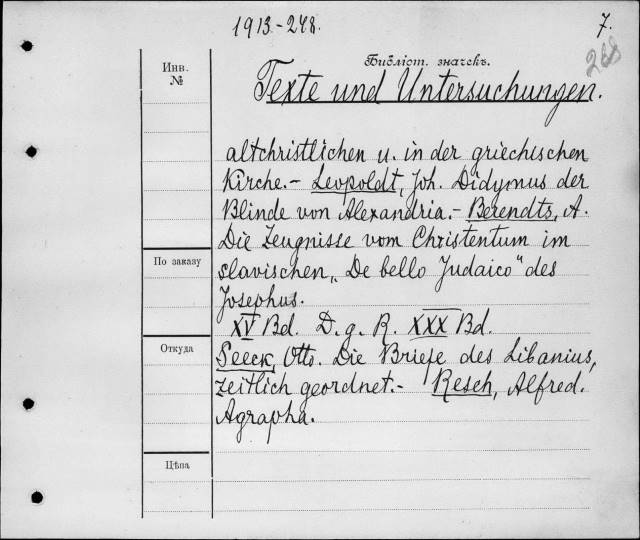 1913-248.
7.
248
Инв.
№
Библіот. значекъ.
Texte und Untersuchungen.
altchristlichen u. in der griechischen
Kirche.- Leopoldt, Joh. Didymus der
Blinde von Alexandria.- Berendts, A.
Die Zeugnisse vom Christentum im
slavischen „De bello Judaico" des
Josephus.
По заказу
XV Bd. D. g. R. XXX Bd.
Откуда
Seeck, Otto. Die Briefe des Libanius,
zeitlich geordnet.- Resch, Alfred.
Agrapha.
Цѣна